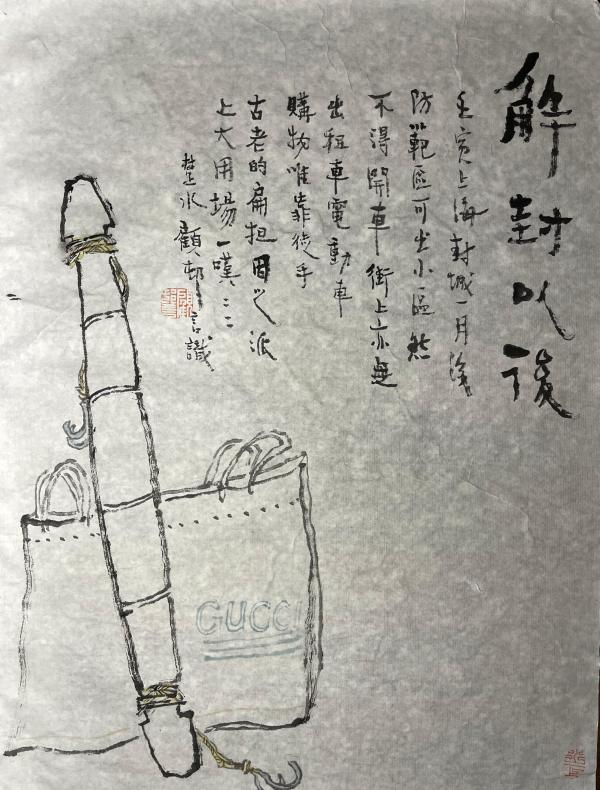 解封以後
壬寅上海封城一月後
防範區可出小區然
不得開車街上亦無
出租車電動車
購物唯靠徒手
古老的扁担因之派
上大用場一嘆：：
水顧邨言識
GUCCI